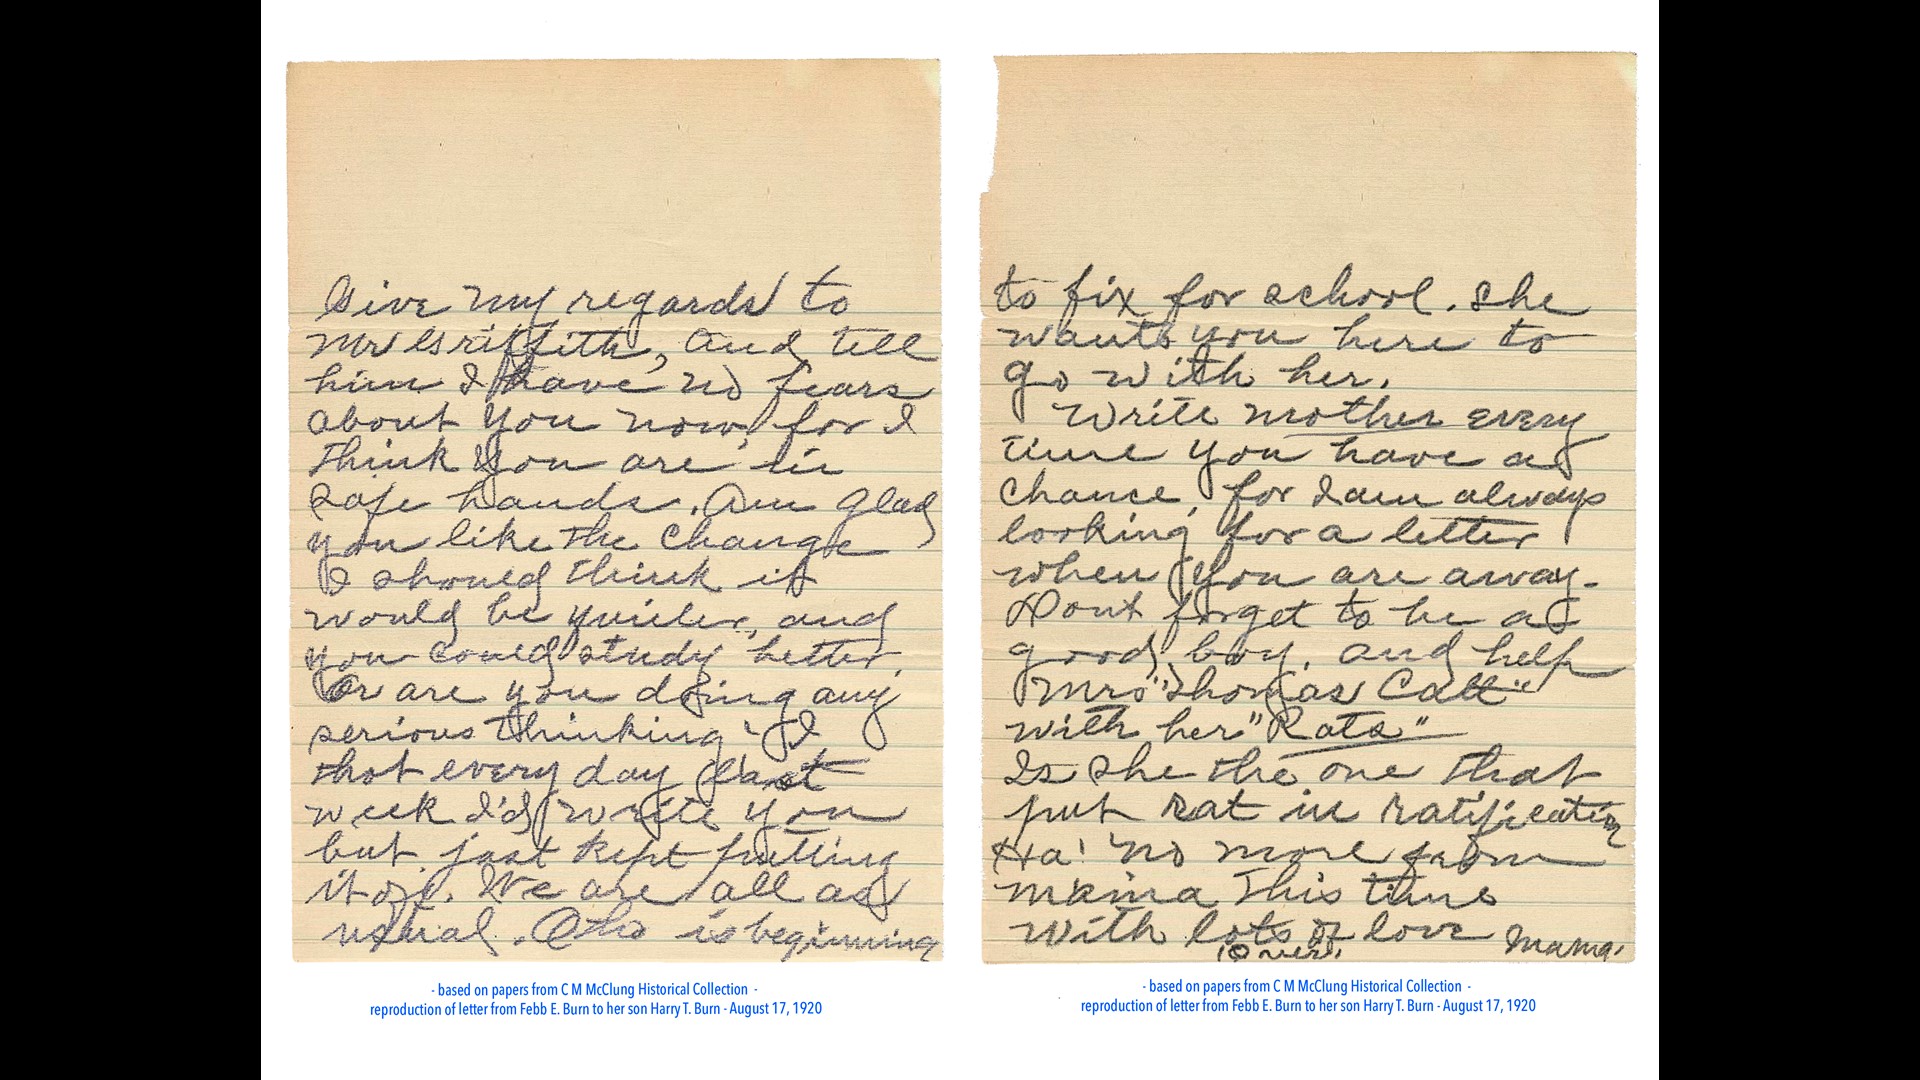 Give my regards to
Mr Griffith, and tell
him I have no fears
about you now, for I
think you are in
safe hands. Am glad
you like the change
I should think it
would be quieter, and
you could study better.
Or are you doing any
serious thinking - I
thot every day last
week I'd write you
but just kept putting
it off. We are all as
usual. Otho is beginning
- based on papers from C M McClung Historical Collection -
reproduction of letter from Febb E. Burn to her son Harry T. Burn - August 17, 1920
to fix for school. She
wants you here to
go with her.
Write mother every
time you have a
chance, for I am always
looking for a letter
when you are away.
Dont forget to be a
good boy, and help
Mrs "Thomas Catt"
with her "Rats"
Is she the one that
put rat in ratification
Ha! No more from
mama this time
With lots of love Mama.
Over.
- based on papers from C M McClung Historical Collection -
reproduction of letter from Febb E. Burn to her son Harry T. Burn - August 17, 1920